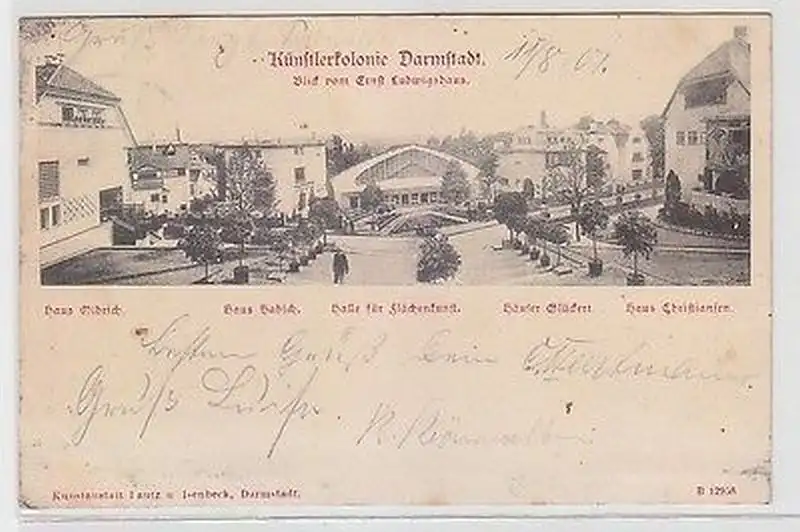 Gruß
Künstlerkolonie Darmstadt.
Blick vom Ernst Ludwigshaus.
Haus Olbrich. Haus Habich. Halle für Flächenkunst. Häuser Glückert Haus Christiansen.
Besten Gruß Dein
Gruß Luise.
Kunstanstalt Lautz u. Isenbeck, Darmstadt. D 12958